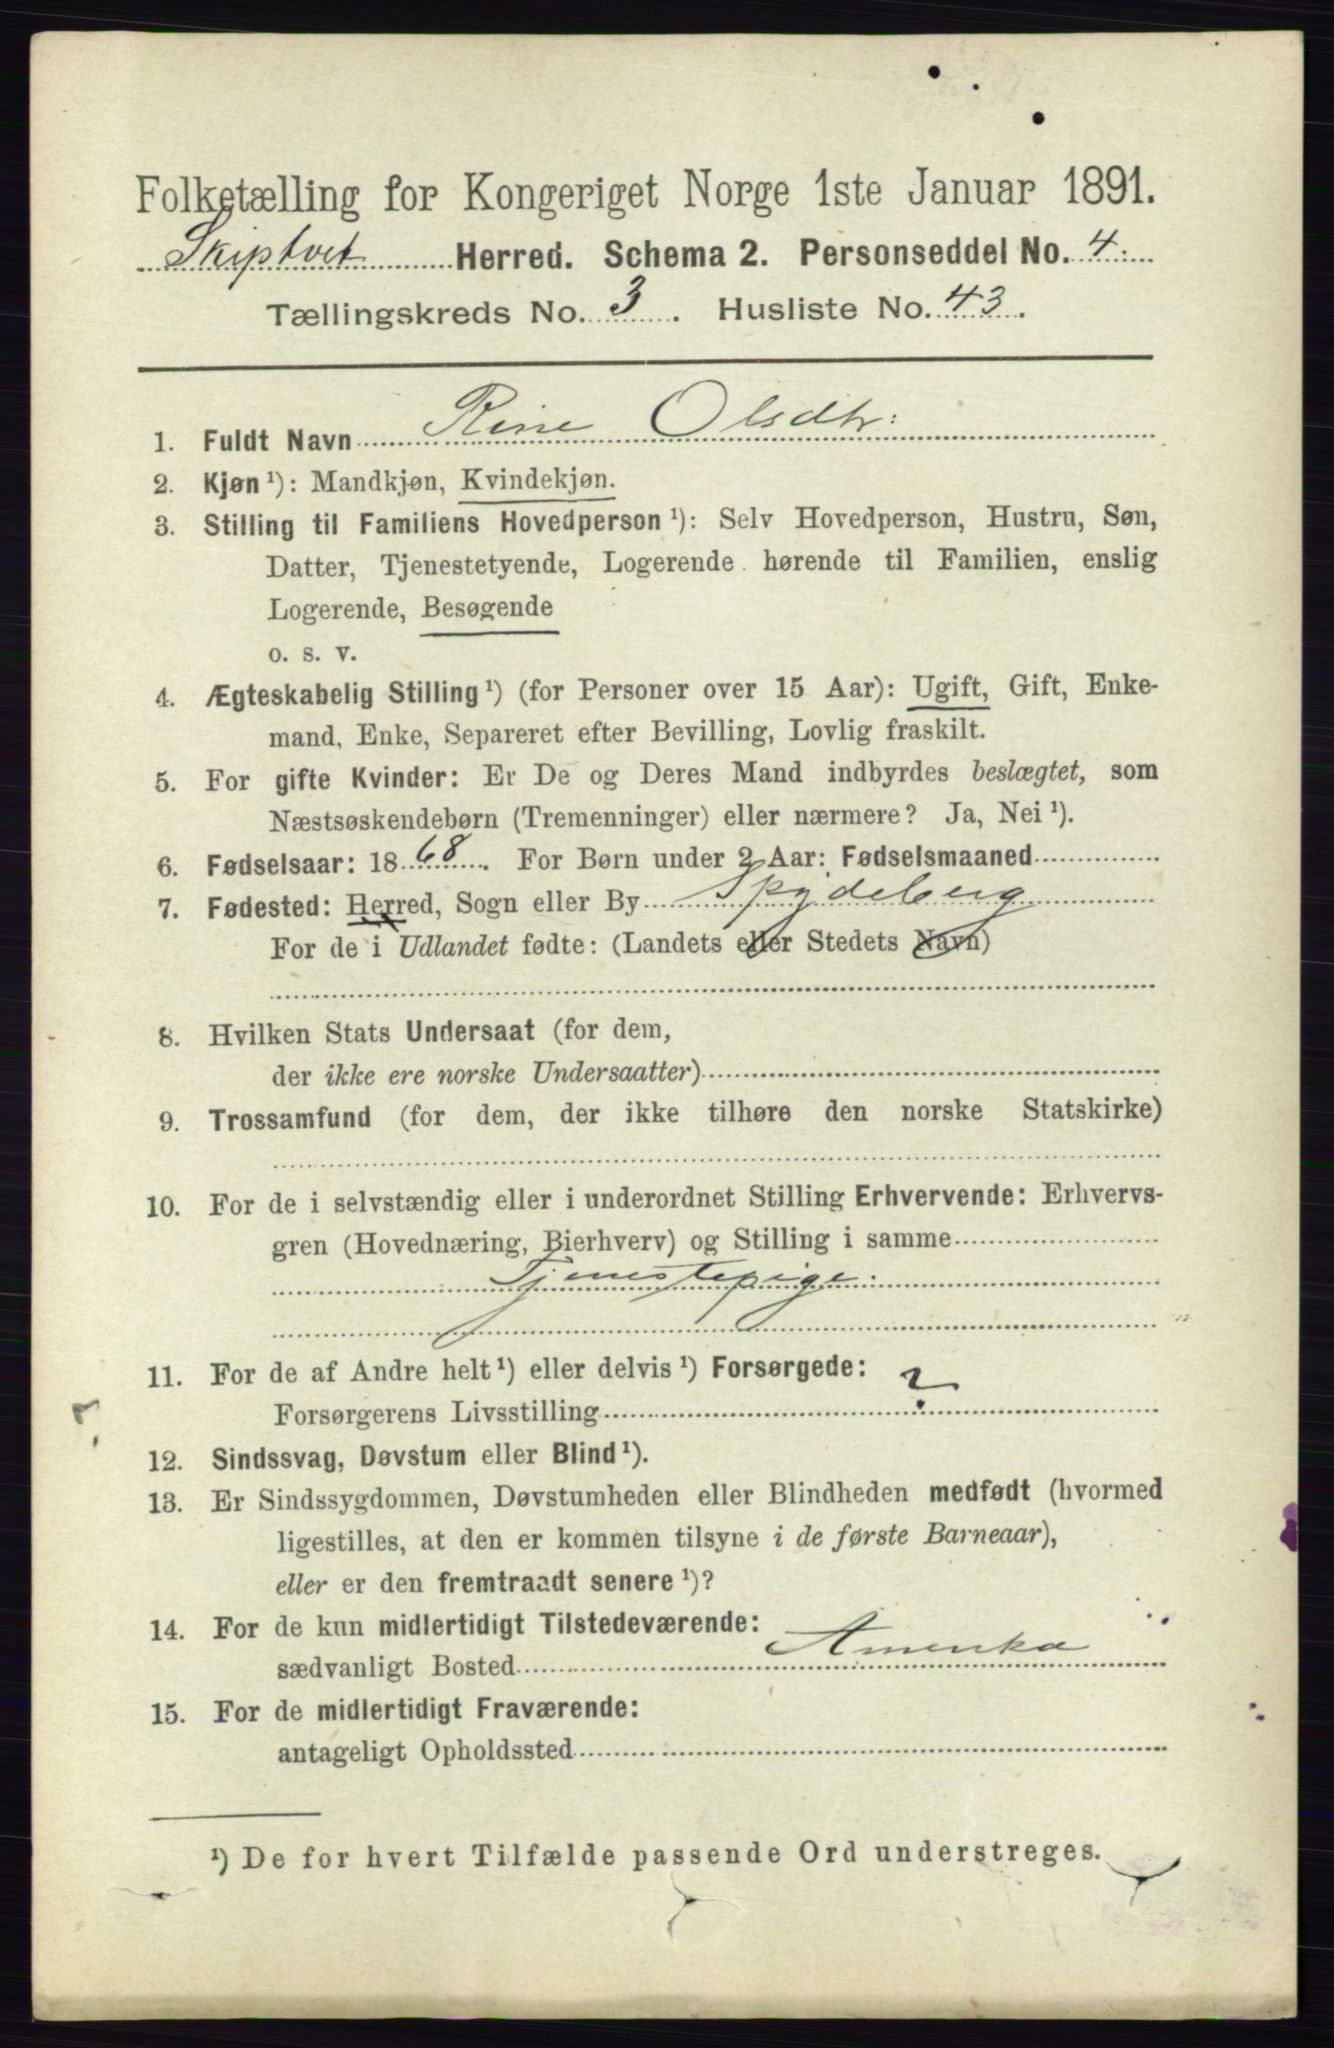 Folketælling for Kongeriget Norge 1ste Januar 1891.
Skiptvet Herred. Schema 2. Personseddel No. 4.
Tællingskreds No. 3. Husliste No. 43.
1. Fuldt Navn Rine Olsdtr:
2. Kjøn ¹): Mandkjøn, Kvindekjøn.
3. Stilling til Familiens Hovedperson ¹): Selv Hovedperson, Hustru, Søn,
Datter, Tjenestetyende, Logerende hørende til Familien, enslig
Logerende, Besøgende
o. s. v.
4. Ægteskabelig Stilling ¹) (for Personer over 15 Aar): Ugift, Gift, Enke-
mand, Enke, Separeret efter Bevilling, Lovlig fraskilt.
5. For gifte Kvinder: Er De og Deres Mand indbyrdes beslægtet, som
Næstsøskendebørn (Tremenninger) eller nærmere? Ja, Nei ¹).
6. Fødselsaar: 1868. For Børn under 2 Aar: Fødselsmaaned
7. Fødested: Herred, Sogn eller By Spydeberg
For de i Udlandet fødte: (Landets eller Stedets Navn)
8. Hvilken Stats Undersaat (for dem,
der ikke ere norske Undersaatter)
9. Trossamfund (for dem, der ikke tilhøre den norske Statskirke)
10. For de i selvstændig eller i underordnet Stilling Erhvervende: Erhvervs-
gren (Hovednæring, Bierhverv) og Stilling i samme
Tjenestepige.
11. For de af Andre helt ¹) eller delvis ¹) Forsørgede:
Forsørgerens Livsstilling ?
12. Sindssvag, Døvstum eller Blind ¹).
13. Er Sindssygdommen, Døvstumheden eller Blindheden medfødt (hvormed
ligestilles, at den er kommen tilsyne i de første Barneaar),
eller er den fremtraadt senere ¹)?
14. For de kun midlertidigt Tilstedeværende:
sædvanligt Bosted Amerika
15. For de midlertidigt Fraværende:
antageligt Opholdssted
¹) De for hvert Tilfælde passende Ord understreges.